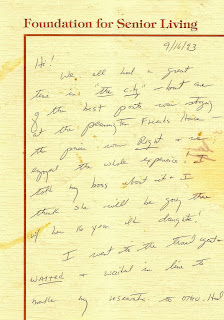 Foundation for Senior Living
9/16/93
Hi!
We all had a great
time in "the city" - but one
of the best parts was staying
at the Pennington Friends House -
the price was Right & we
enjoyed the whole experience. I
told my boss about it & I
think she will be going there
w/ her 16 year old daughter!
I went to the travel agent
WAITED & waited in line to
make my reservation to